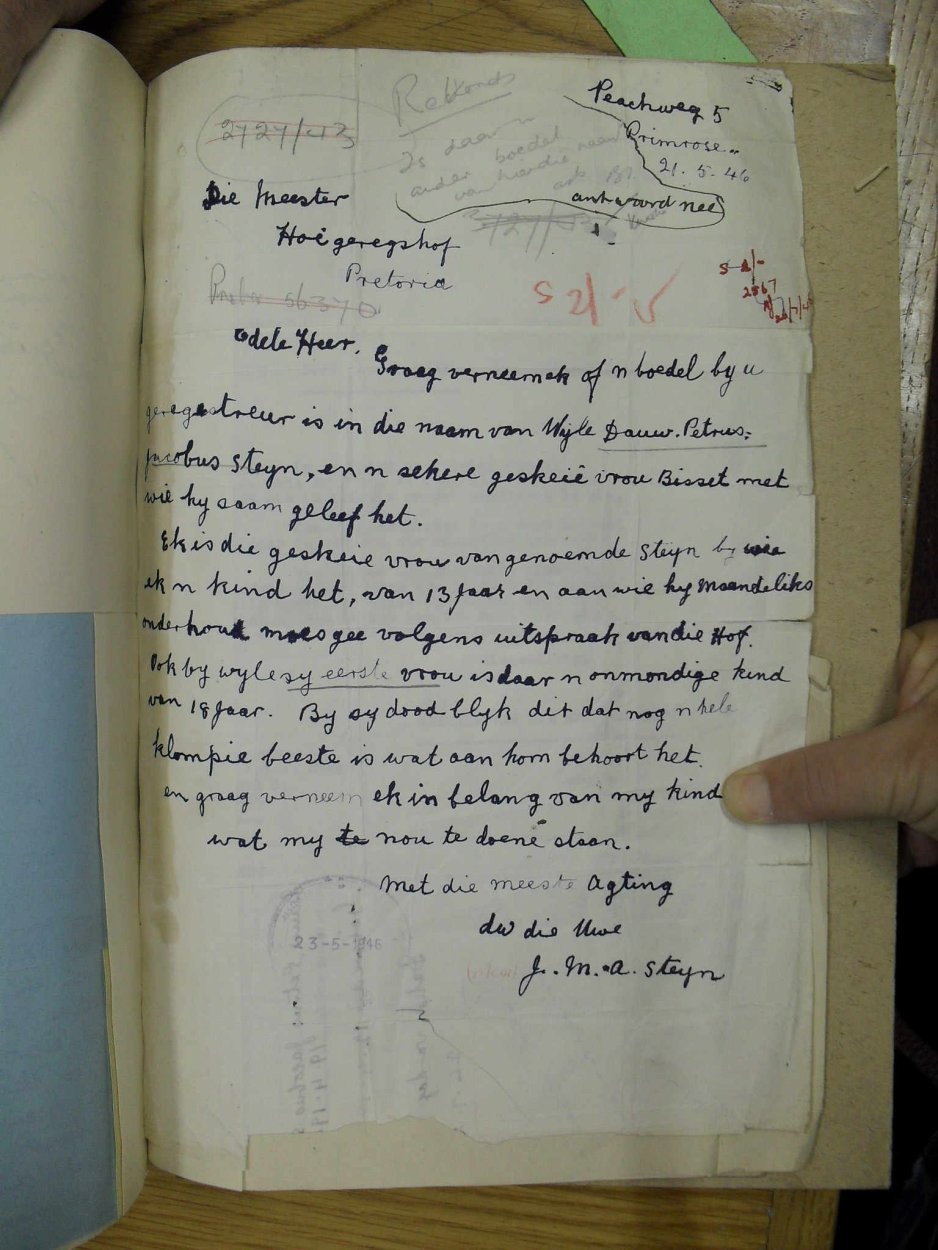 Rekords
2727/43
Peachweg 5
Primrose..
21.5.46
Is daar n
ander boedel
van hierdie naam
antwoord nee
Die Meester
Hoë geregshof
Pretoria
S 2/-
S 2/-
2567
56370
Edele Heer.
Graag verneem ek of n boedel by u
geregestreur is in die naam van Wyle Dauw. Petrus:
Jacobus Steyn, en n sekere geskeië vrou Bisset met
wie hy saam geleef het.
Ek is die geskeie vrou van genoemde Steyn by wie
ek n kind het, van 13 Jaar en aan wie hy maandeliks
onderhoud moes gee volgens uitspraak van die Hof.
Ook by wyle sy eerste vrou is daar n onmondige kind
van 18 Jaar. By sy dood blyk dit dat nog n hele
klompie beeste is wat aan hom behoort het.
en graag verneem ek in belang van my kind
wat my te nou te doene staan.
Met die meeste Agting
dw die Uwe
J. M. A. Steyn
23-5-1946